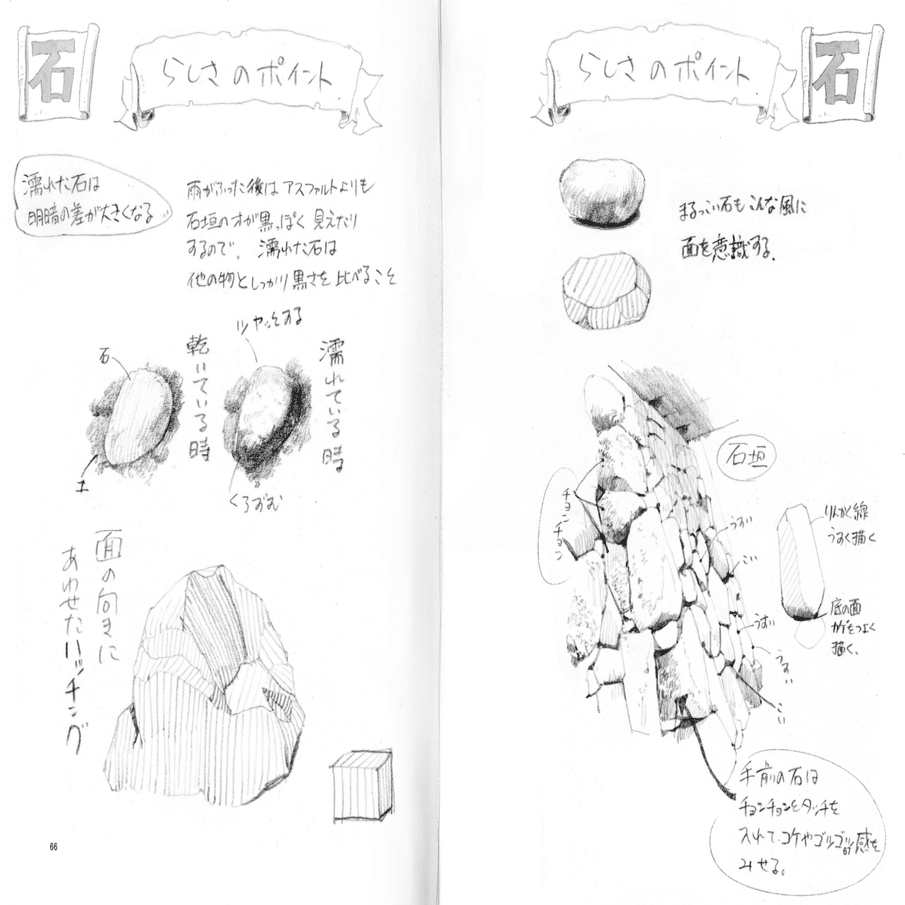 石
らしさのポイント
濡れた石は
明暗の差が大きくなる
雨がふった後はアスファルトよりも
石垣の方が黒っぽく見えたり
するので、濡れた石は
他の物としっかり黒さを比べること
乾いている時
石
土
濡れている時
ツヤっとする
くろずむ
面の向きに
あわせたハッチング
66
らしさのポイント
石
まるっこい石もこんな風に
面を意識する。
石垣
チョンチョン
うすい
こい
うすい
うすい
こい
りんかく線
うすく描く
底の面
カゲをつよく
描く、
手前の石は
チョンチョンとタッチを
入れて、コケやゴツゴツ感を
みせる。
67